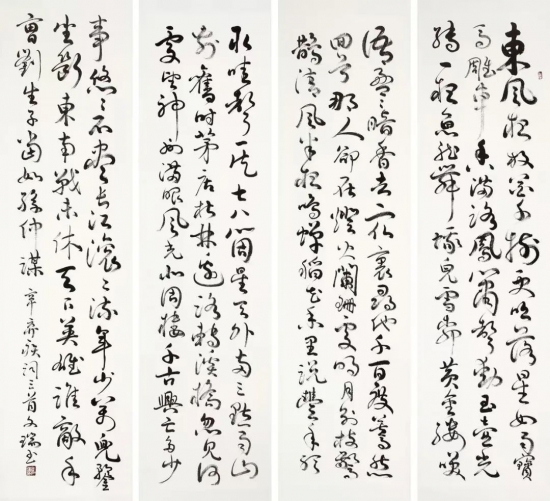 東風夜放花千樹更吹落星如雨寶
馬雕車香滿路鳳簫聲動玉壺光
轉一夜魚龍舞蛾兒雪柳黃金縷笑
語盈盈暗香去衆裏尋他千百度驀然
回首那人卻在燈火闌珊處明月別枝驚
鵲清風半夜鳴蟬稻花香里說豐年聽
取蛙聲一片七八個星天外兩三點雨山
前舊時茅店社林邊路轉溪橋忽見何
處望神州滿眼風光北固樓千古興亡多少
事悠悠不盡長江滾滾流年少萬兜鍪
坐斷東南戰未休天下英雄誰敵手
曹劉生子當如孫仲謀 辛棄疾詞三首文瑞書